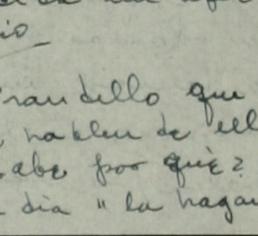 io_
randello que
, hablen de ell
sabe por qué?
dia " la hagan